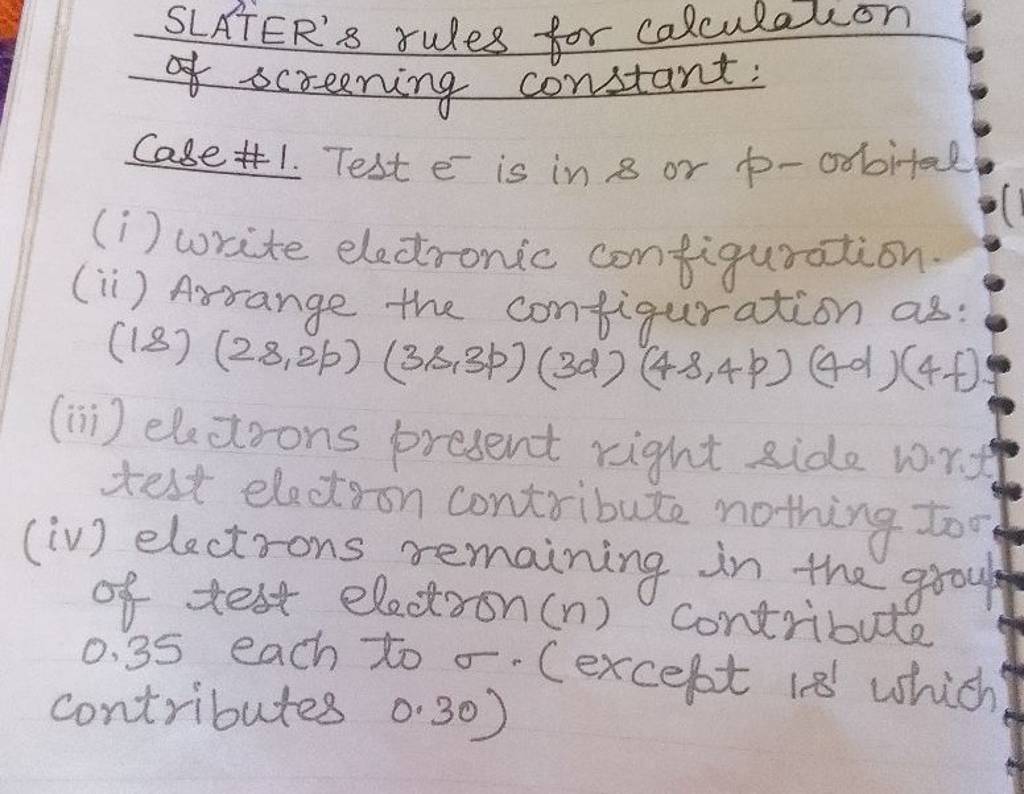 SLATER's rules for calculation
of screening constant:
Case #1. Test e⁻ is in s or p-orbital
(i) write electronic configuration.
(ii) Arrange the configuration as:
(1s) (2s,2p) (3s,3p) (3d) (4s,4p) (4d) (4f)
(iii) electrons present right side w.r.t
test electron contribute nothing to σ
(iv) electrons remaining in the group
of test electron (n) contribute
0.35 each to σ. (except 1s which
contributes 0.30)